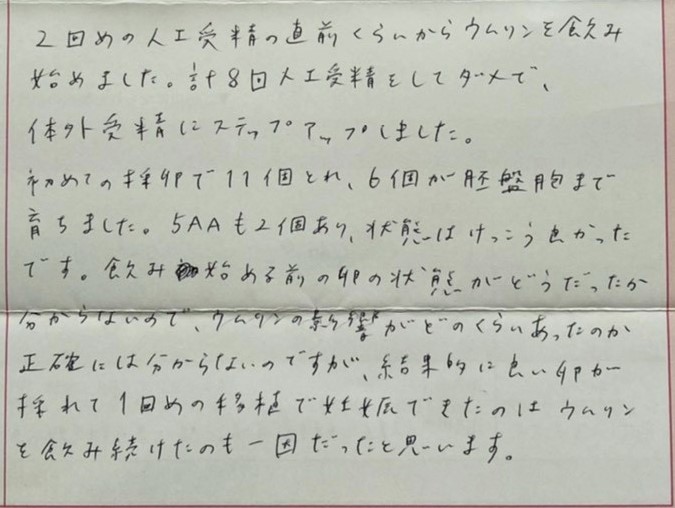 2回めの人工受精の直前くらいからウムリンを飲み
始めました。計8回人工受精をしてダメで、
体外受精にステップアップしました。
初めての採卵で11個とれ、6個が胚盤胞まで
育ちました。5AAも2個あり、状態はけっこう良かった
です。飲み始める前の卵の状態がどうだったか
分からないので、ウムリンの影響がどのくらいあったのか
正確には分からないのですが、結果的に良い卵が
採れて1回めの移植で妊娠できたのはウムリン
を飲み続けたのも一因だったと思います。